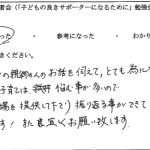 者会(「子どもの良きサポーターになるために」勉強
った ・ 参考になった ・ わかり
ください。
の親御さんのお話を伺えて、とても為に
子育ては、悩む事が多いので
場を提供して下さり振り返る事ができて
す! また宜しくお願い致します。